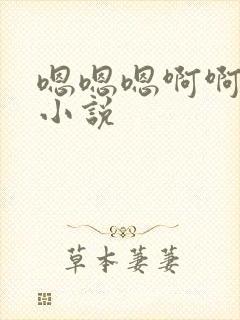 嗯嗯嗯啊啊
小说
草本萋萋